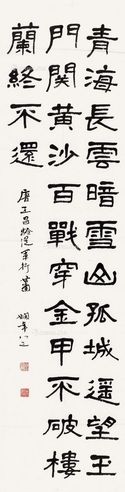 青海長雲暗雪山孤城遙望玉
門關黃沙百戰穿金甲不破樓
蘭終不還
唐王昌齡從軍行 蕭
嫻年八